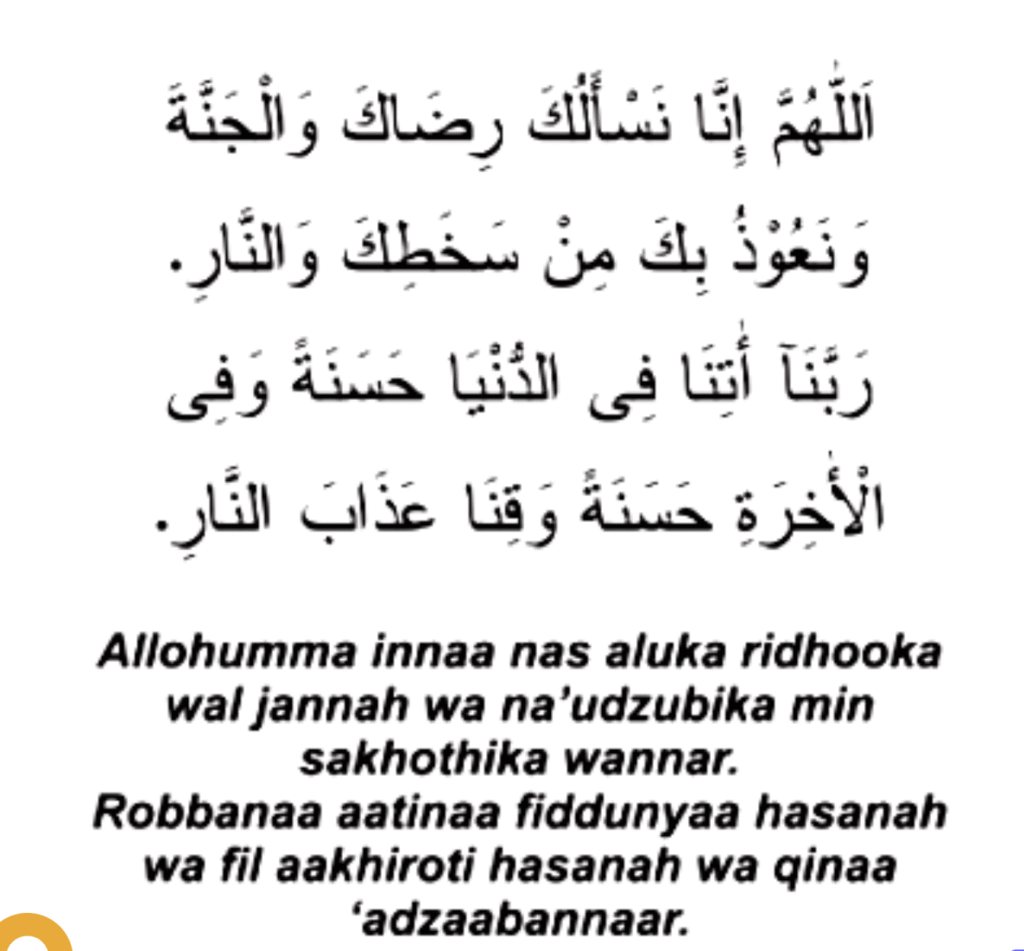 اَللّٰهُمَّ إِنَّا نَسْأَلُكَ رِضَاكَ وَالْجَنَّةَ
وَنَعُوْذُ بِكَ مِنْ سَخَطِكَ وَالنَّارِ.
رَبَّنَآ أٰتِنَا فِى الدُّنْيَا حَسَنَةً وَفِى
الْأٰخِرَةِ حَسَنَةً وَقِنَا عَذَابَ النَّارِ.
Allohumma innaa nas aluka ridhooka
wal jannah wa na’udzubika min
sakhothika wannar.
Robbanaa aatinaa fiddunyaa hasanah
wa fil aakhiroti hasanah wa qinaa
‘adzaabannaar.